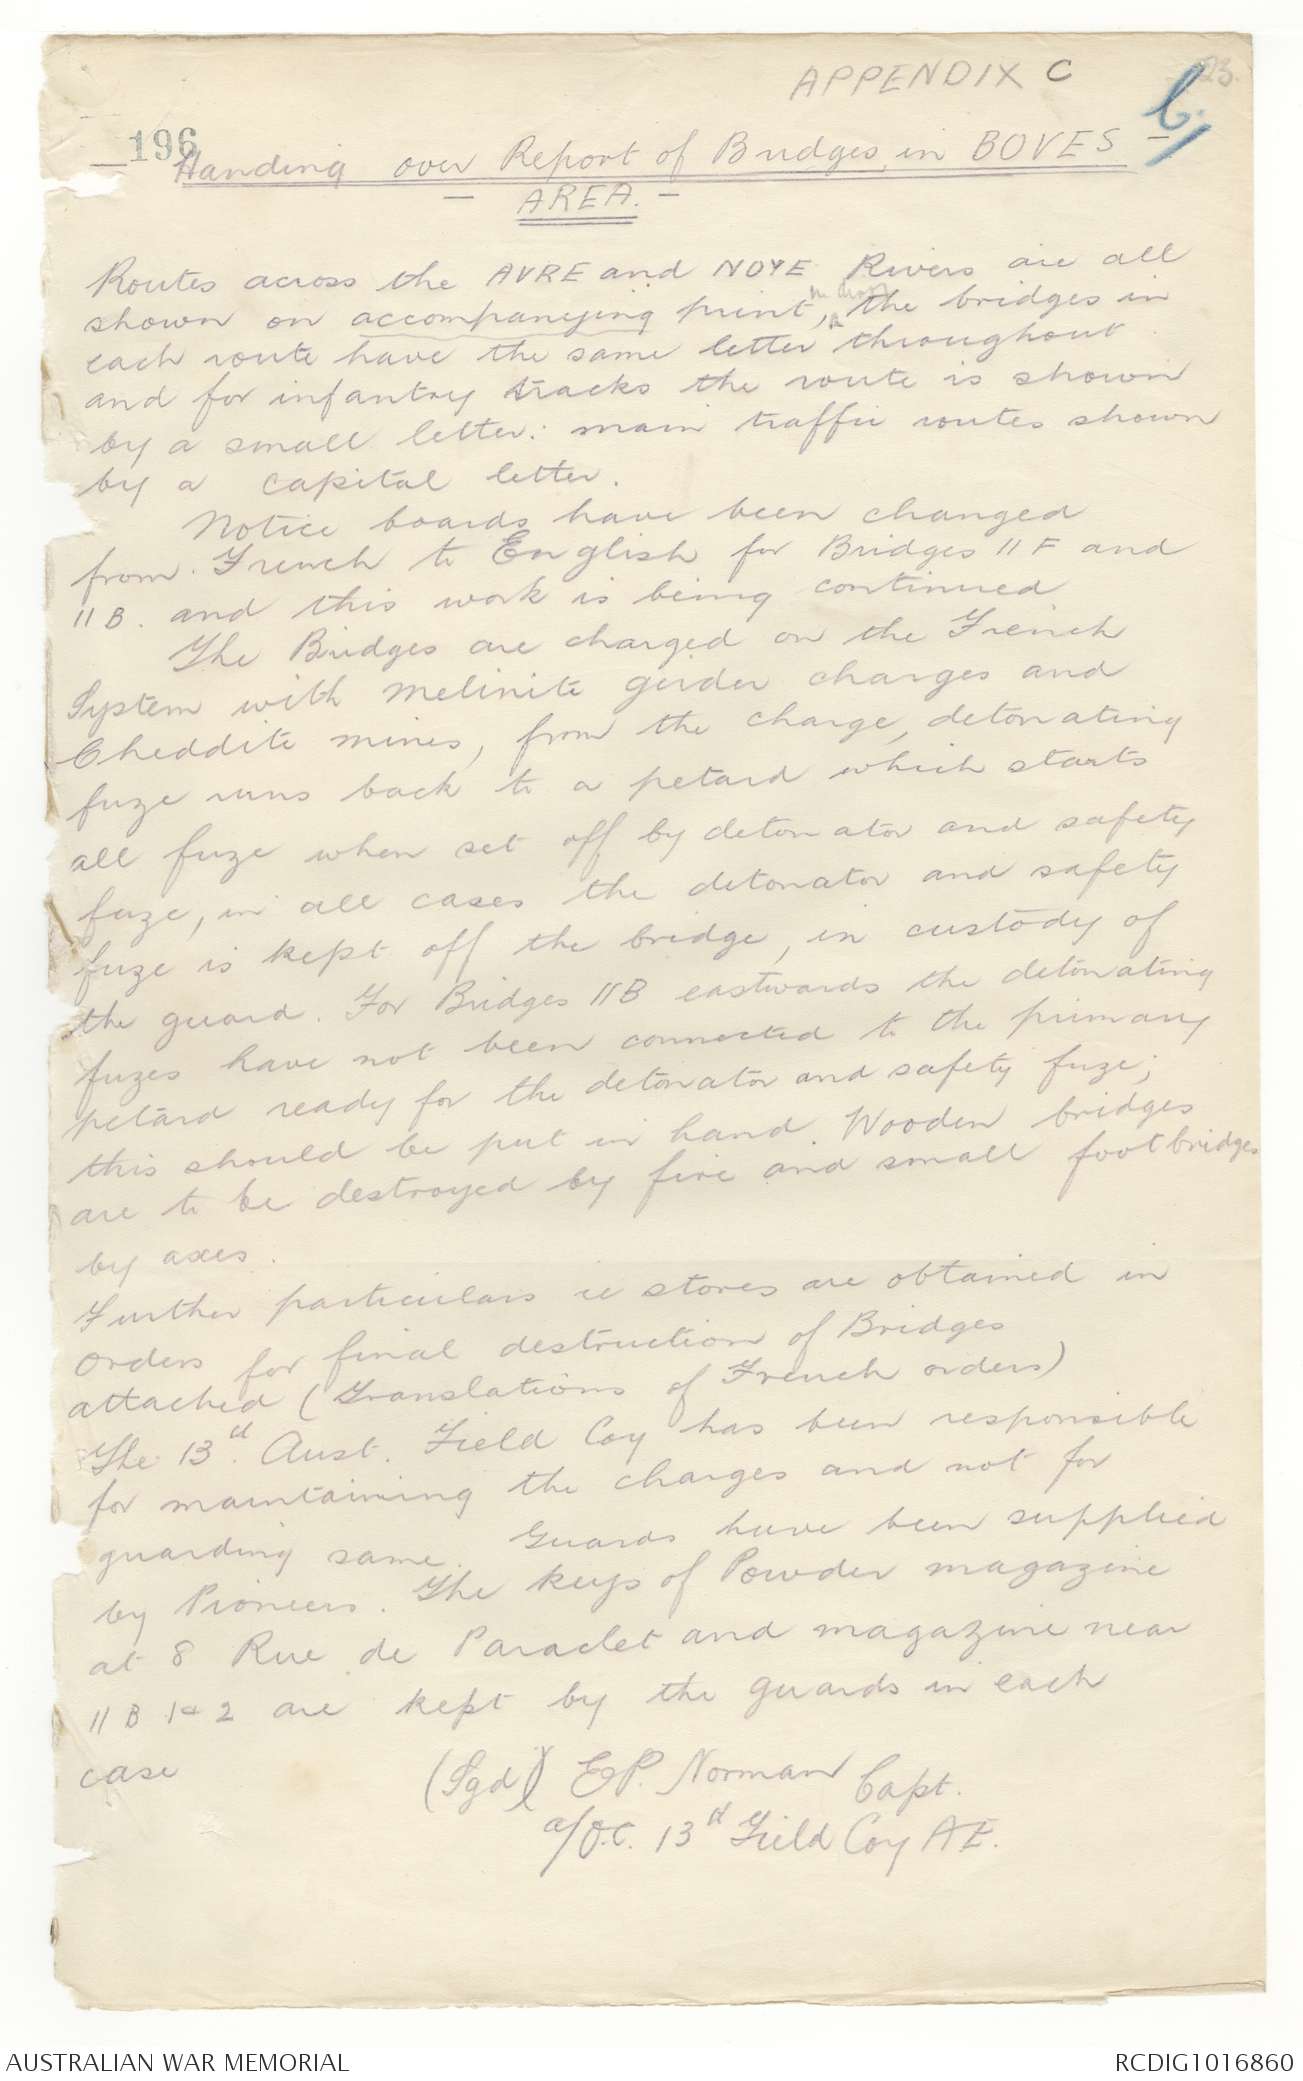 APPENDIX C
23.
C.
196
Handing over Report of Bridges in BOVES
AREA.
Routes across the AVRE and NOYE Rivers are all
shown on accompanying print, the bridges in
each route have the same letter throughout
and for infantry tracks the route is shown
by a small letter: main traffic routes shown
by a capital letter.
Notice boards have been changed
from French to English for Bridges 11F and
11B. and this work is being continued
The Bridges are charged on the French
System with Melinite girder charges and
Cheddite mines, from the charge, detonating
fuze runs back to a petard which starts
all fuze when set off by detonator and safety
fuze, in all cases the detonator and safety
fuze is kept off the bridge, in custody of
the guard. For Bridges 11B eastwards the detonating
fuzes have not been connected to the primary
petard ready for the detonator and safety fuze;
this should be put in hand. Wooden bridges
are to be destroyed by fire and small footbridges
by axes.
Further particulars ie stores are obtained in
orders for final destruction of Bridges
attached (Translations of French orders)
The 13th. Aust. Field Coy has been responsible
for maintaining the charges and not for
guarding same. Guards have been supplied
by Pioneers. The keys of Powder magazine
at 8 Rue de Paraclet and magazine near
11 B 1 & 2 are kept by the guards in each
case
(Sgd) E.P. Norman Capt.
a/O.C. 13th Field Coy A E.
AUSTRALIAN WAR MEMORIAL
RCDIG1016860